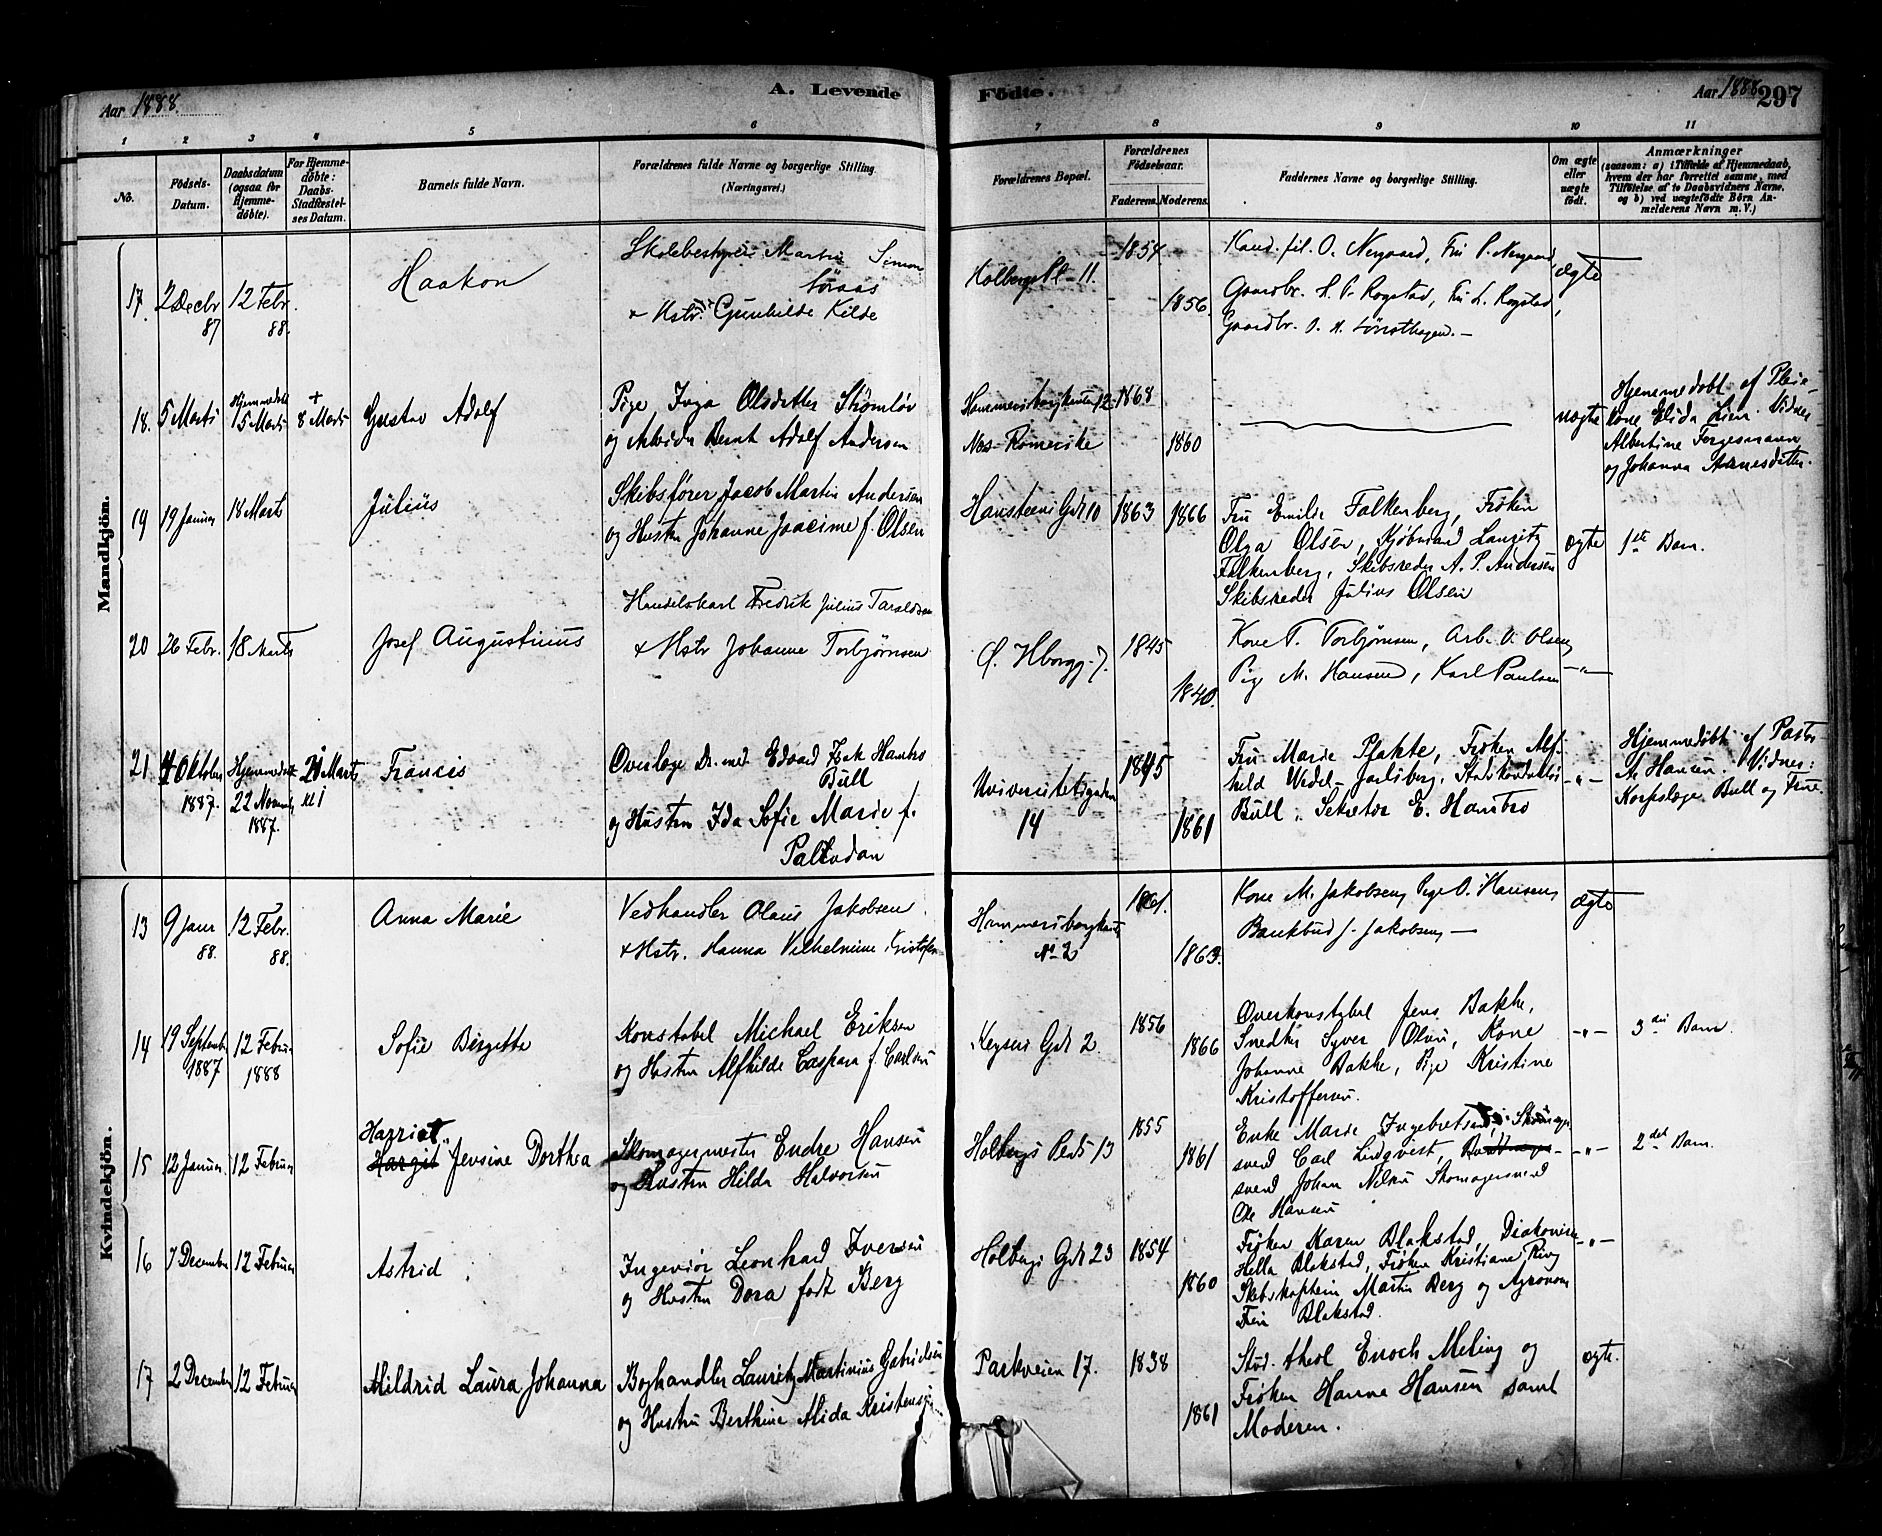 Aar 1888. A. Levende Fødte. Aar 1888 297
1 2 3 4 5 6 7 8 9 10 11
No.
Fødsels-
Datum.
Daabsdatum
(ogsaa for
Hjemme-
døbte).
For Hjemme-
døbte:
Daabs-
Stadfæstel-
ses Datum.
Barnets fulde Navn.
Forældrenes fulde Navne og borgerlige Stilling.
(Næringsvei.)
Forældrenes Bopæl.
Forældrenes
Fødselsaar.
Faderens. Moderens.
Faddernes Navne og borgerlige Stilling.
Om ægte
eller
uægte
født.
Anmærkninger
(saasom: a) i Tilfælde af Hjemmedaab,
hvem der har forrettet samme, med
Tilføielse af to Daabsvidners Navne,
og b) ved uægtefødte Børn An-
melderens Navn m. V.)
Mandkjön.
17. 2 Decbr 87
12 Febr. 88.
Haakon
Skolebestyrer Martin Simon
Søraas
+ Hstr. Gunhilde Kilde
Holbergs Pl. 11.
1854
1856.
Kand. fil. O. Nergaard, Fru P. Nergaard,
Gaardbr. H. P. Rogstad, Fru L. Rogstad,
Gaardbr. O. H. Lønsthagen. —
ægte
18. 5 Marts
Hjemmedøbt
15 Marts
+
8 Marts
Gustav Adolf
Pige Inga Olsdatter Strømløv
og Arbeider Bernt Adolf Andersen
Hammersborgkroken 12
Næs Romerike
1868
1860
uægte
Hjemmedøbt af Pleie-
kone Elida Lien. Vidner
Albertine Torgesmann
og Johanna Arnesdatter.
19 19 Januar 18 Marts
Julius
Skibsfører Jacob Martin Andersen
og Hustru Johanne Joacime f. Olsen
Hansteens Gd 10
1863 1866
Fru Emilie Falkenberg, Frøken
Olga Olsen, Kjøbmand Lauritz
Falkenberg, Skibsreder A. P. Andersen
Skibsreder Julius Olsen
ægte
1ste Barn.
20 26 Febr. 18 Marts
Josef Augustinus
Handelskarl Fredrik Julius Taraldsen
+ Hstr Johanne Torbjørnsen
Ø. Hborgg. 7.
1845
1840.
Kone T. Torbjørnsen, Arb. O. Olsen
Pige M. Hansen, Karl Paulsen
— " —
21 4 Oktober
1887.
Hjemmedøbt
22 Novembr
1887.
21 Marts
Francis
Overlæge Dr. med Edvard Isak Hambro
Bull
og Hustru Ida Sofie Marie f.
Paludan
Universitetsgaden
14
1845
1861
Fru Marie Plahte, Frøken Alf-
hild Wedel-Jarlsberg, Stadskonduktør
Bull, Sekretær E. Hambro
— " —
Hjemmedøbt af Pastor
Hansen. Vidner:
Korpslæge Bull og Frue.
Kvindekjön.
13 9 Janr 88.
12 Febr. 88.
Anna Marie
Vedhandler Olaus Jakobsen
+ Hstr. Hanna Vilhelmine Kristofers
Hammersborgkroken
No 2
1861.
1863.
Kone M. Jakobsen, Pige O. Hansen,
Bankbud J. Jakobsen —
ægte
14 19 Septemb
1887
12 Februar
1888
Sofie Birgitte
Konstabel Michael Eriksen
og Hustru Alfhilde Caspara f. Carlsen
Keysers Gd 2.
1856
1866
Overkonstabel Jens Bakke,
Snedker Syver Olsen, Kone
Johanne Bakke, Pige Kristine
Kristoffersen.
— " —
3die Barn.
15 12 Januar 12 Februar
Harriet
Hargit Jensine Dorthea
Skomagermester Endre Hansen
og Hustru Hilda Halvorsen
Holbergs Plads 13
1855
1861
Enke Marie Ingebretsen, Skomager-
svend Carl Lindqvist,
svend Johan Nilsen Skomagersvend
Ole Hansen
— " —
2det Barn.
16 7 December 12 Februar
Astrid
Ingeniør Leonhard Iversen
og Hustru Dora født Berg
Holbergs Gd 23
1854
1860
Frøken Karen Blakstad, Diakonisse
Hella Blakstad, Frøken Kristiane Ring
Skibskaptein Martin Berg og Agronom
Finn Blakstad.
— " —
17 2 December 12 Februar
Mildrid Laura Johanna
Boghandler Lauritz Martinius Gabrielsen
og Hustru Berthine Alida Kristensen
Parkveien 17.
1838
1861
Stud. theol. Enoch Meling og
Frøken Hanna Hansen samt
Moderen.
ægte.